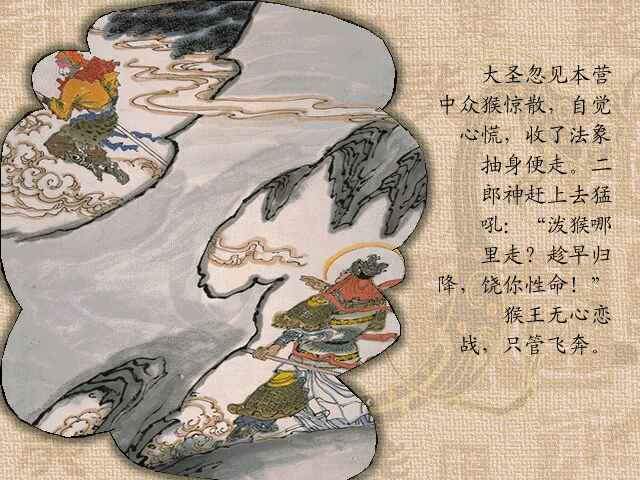 大圣忽见本营
中众猴惊散，自觉
心慌，收了法象
抽身便走。二
郎神赶上去猛
吼：“泼猴哪
里走？趁早归
降，饶你性命！”
猴王无心恋
战，只管飞奔。